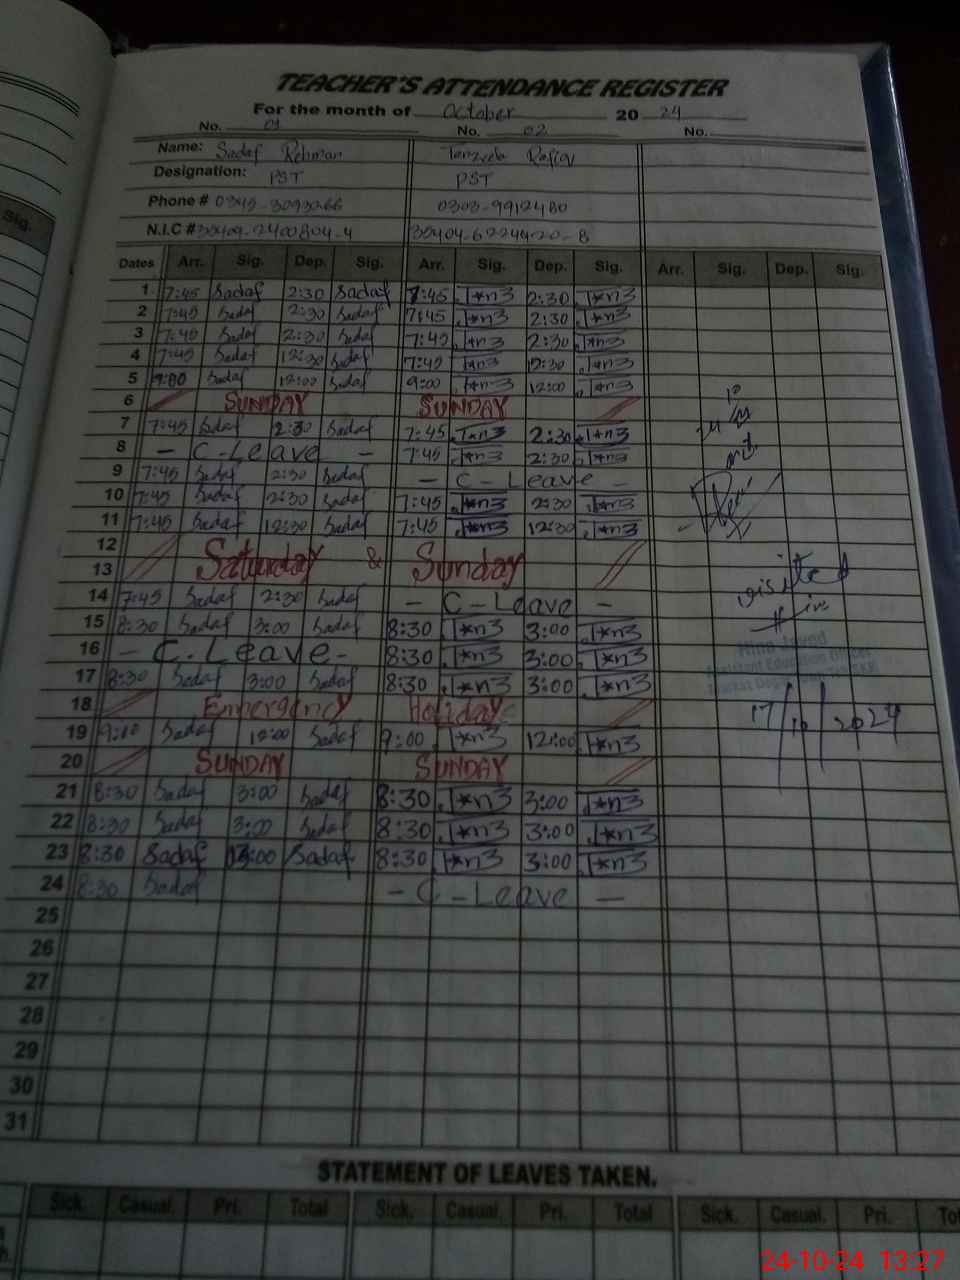 TEACHER'S ATTENDANCE REGISTER
For the month of October 20 24
No. 01 No. 02 No.
Name: Sadaf Rehman Tanzeela Rafiq
Designation: PST PST
Phone # 0303-9912480
N.I.C #
Sig.
Dates Arr. Sig. Dep. Sig. Arr. Sig. Dep. Sig. Arr. Sig. Dep. Sig.
1 7:45 Sadaf 2:30 Sadaf 7:45 2:30
2 7:45 Sadaf 2:30 Sadaf 7:45 2:30
3 7:45 Sadaf 2:30 Sadaf 7:45 2:30
4 7:45 Sadaf 12:30 Sadaf 7:45 12:30
5 9:00 Sadaf 12:00 Sadaf 9:00 12:00
6 SUNDAY SUNDAY
7 7:45 Sadaf 2:30 Sadaf 7:45 2:30
8 - C-Leave - 7:45 2:30
9 7:45 Sadaf 2:30 Sadaf - C-Leave -
10 7:45 Sadaf 2:30 Sadaf 7:45 2:30
11 7:45 Sadaf 12:30 Sadaf 7:45 12:30
12
13 Saturday & Sunday
14 7:45 Sadaf 2:30 Sadaf - C-Leave -
15 8:30 Sadaf 3:00 Sadaf 8:30 3:00
16 - C.Leave - 8:30 3:00
17 8:30 Sadaf 3:00 Sadaf 8:30 3:00
18 Emergency Holiday
19 9:00 Sadaf 12:00 Sadaf 9:00 12:00
20 SUNDAY SUNDAY
21 8:30 Sadaf 3:00 Sadaf 8:30 3:00
22 8:30 Sadaf 3:00 Sadaf 8:30 3:00
23 8:30 Sadaf 3:00 Sadaf 8:30 3:00
24 8:30 Sadaf - C-Leave -
25
26
27
28
29
30
31
visited
Hina Javed
Assistant Education Officer
17/10/2024
STATEMENT OF LEAVES TAKEN.
Sick. Casual. Pri. Total Sick. Casual. Pri. Total Sick. Casual. Pri.
24-10-24 13:27